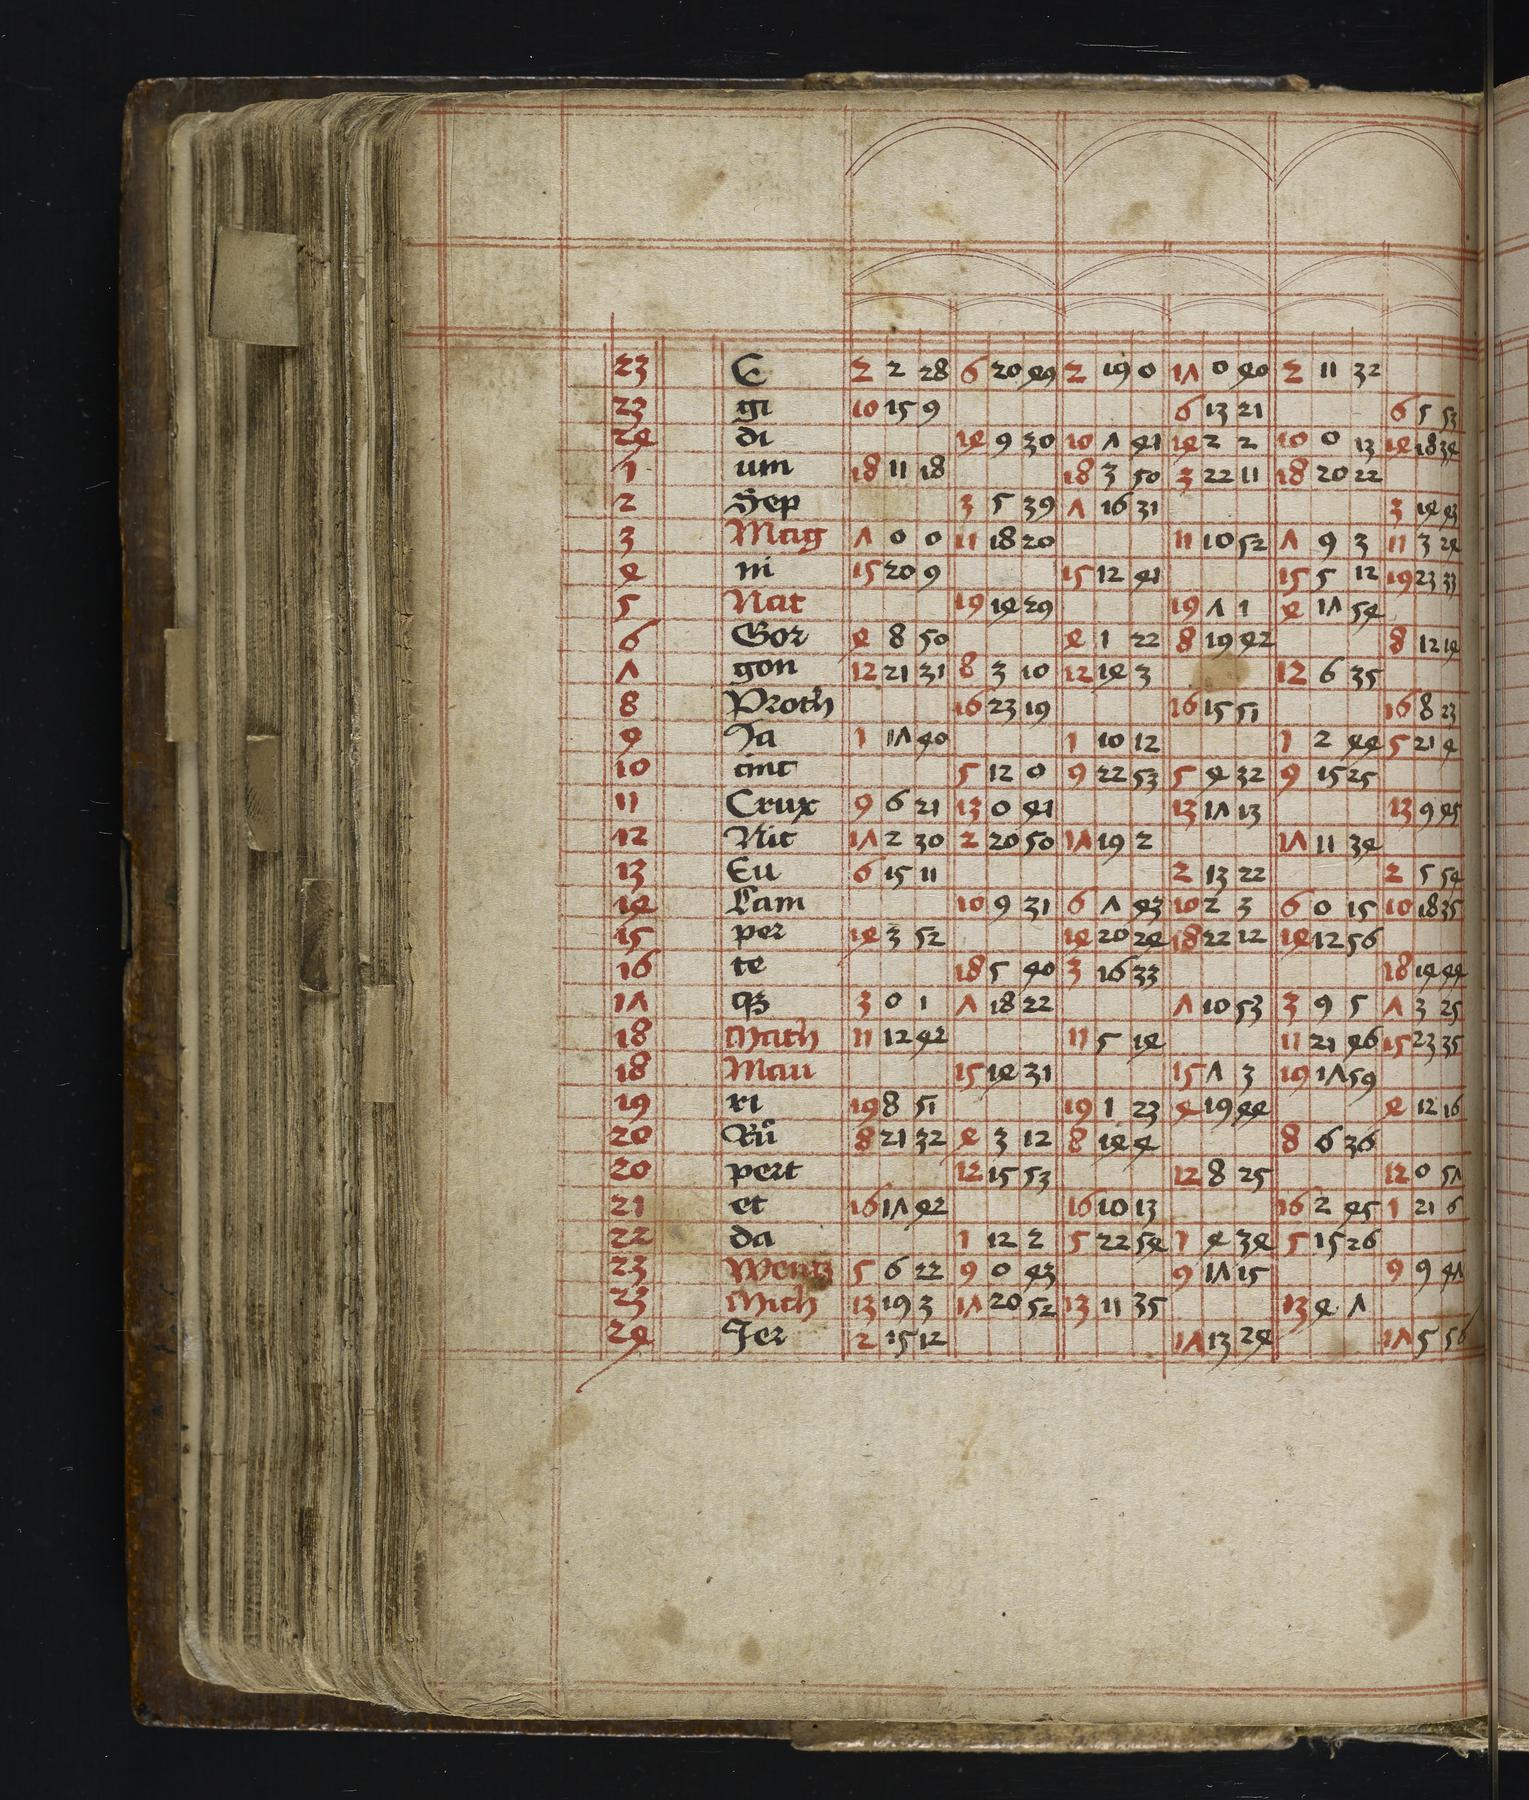 23 E 2 2 28 6 20 49 2 19 0 17 0 40 2 11 32
23 gi 10 15 9 6 13 21 6 5 53
24 di 14 9 30 10 7 41 14 2 2 10 0 13 14 18 34
1 um 18 11 18 18 3 50 3 22 11 18 20 22
2 Sep 3 5 39 7 16 31 3 14 43
3 Mag 7 0 0 11 18 20 11 10 52 7 9 3 11 3 24
4 ni 15 20 9 15 12 41 15 5 12 19 23 33
5 Nat 19 14 29 19 7 1 4 17 54
6 Gor 4 8 50 4 1 22 8 19 42 8 12 14
7 gon 12 21 31 8 3 10 12 14 3 12 6 35
8 Proth 16 23 19 16 15 51 16 8 23
9 Ja 1 17 40 1 10 12 1 2 44 5 21 4
10 cinct 5 12 0 9 22 53 5 4 32 9 15 25
11 Crux 9 6 21 13 0 41 13 17 13 13 9 45
12 Nic 17 2 30 2 20 50 17 19 2 17 11 34
13 Eu 6 15 11 2 13 22 2 5 54
14 Lam 10 9 31 6 7 43 10 2 3 6 0 15 10 18 35
15 per 14 3 52 14 20 24 18 22 12 14 12 56
16 te 18 5 40 3 16 33 18 14 44
17 qȝ 3 0 1 7 18 22 7 10 53 3 9 5 7 3 25
18 Math 11 12 42 11 5 14 11 21 46 15 23 35
18 Mau 15 14 31 15 7 3 19 17 59
19 ri 19 8 51 19 1 23 4 19 44 4 12 16
20 Rů 8 21 32 4 3 12 8 14 4 8 6 36
20 pert 12 15 53 12 8 25 12 0 57
21 et 16 17 42 16 10 13 16 2 45 1 21 6
22 da 1 12 2 5 22 54 1 4 34 5 15 26
23 Wentz 5 6 22 9 0 43 9 17 15 9 9 47
23 Mich 13 19 3 17 20 52 13 11 35 13 4 7
24 Jer 2 15 12 17 13 24 17 5 56